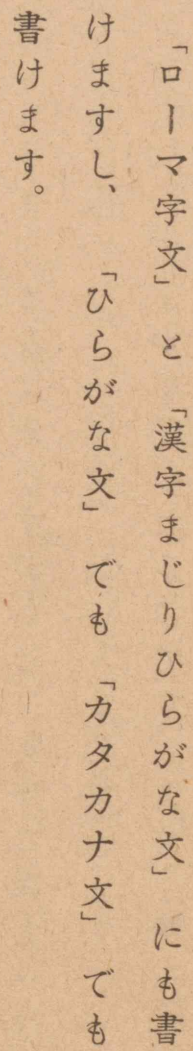 「ローマ字文」と「漢字まじりひらがな文」にも書
けますし、「ひらがな文」でも「カタカナ文」でも
書けます。